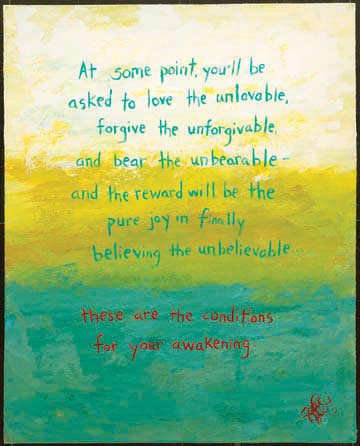 At some point, you'll be
asked to love the unlovable,
forgive the unforgivable,
and bear the unbearable -
and the reward will be the
pure joy in finally
believing the unbelievable...
these are the conditions
for your awakening.